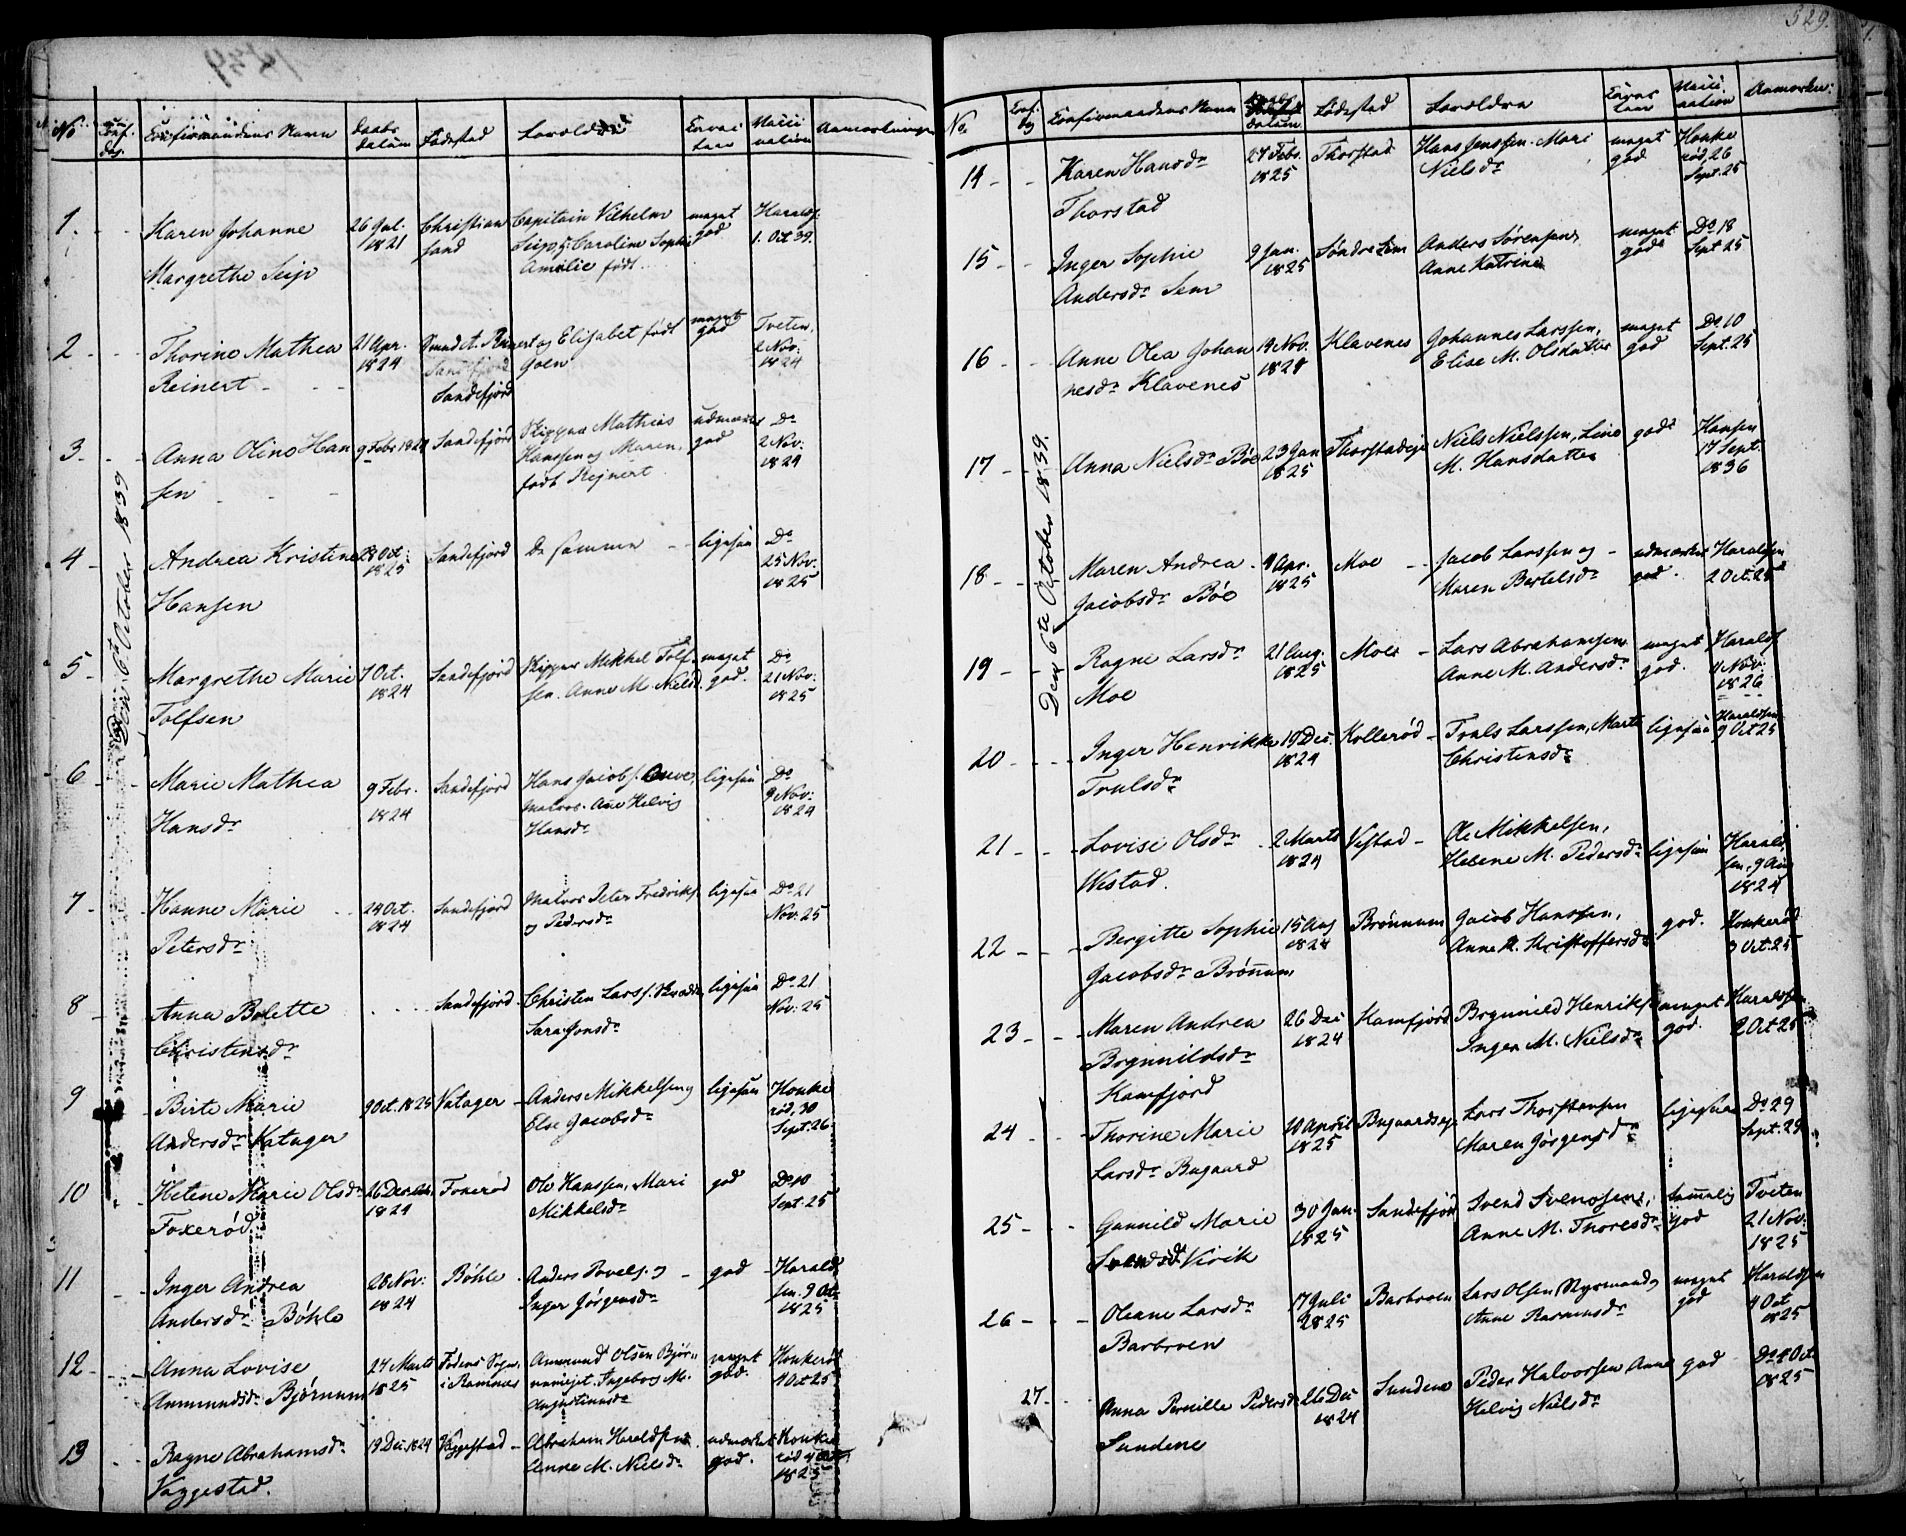 529.
No
Conf. Dag.
Confirmandens Navn
Daabs Datum
Fødested
Forældre
Vaccination
Anmærkninger
Den 6te October 1839
1.
Karen Johanne
Margrethe Seip
26 Jul.
1821
Christian
sand
Capitain Vilhelm
Seip, Caroline Sophie
Amalie født
meget
god
Haralds.
1. Oct 39.
2
Thorine Mathea
Reinert
21 Apr.
1824
Sandefjord
og Elisabet født
meget
god
Tveten,
2 Nov.
1824
3
Anna Oline Han
sen
9 Febr 1824
Sandefjord
Skipper Mathias
Hanssen og Maren,
født Reinert
udmærket
god
Do
2 Nov:
1824
4
Andrea Kristine
Hansen
28 Oct
1825
Sandefjord
De samme
ligesaa
Do
25 Nov.
1825
5
Margrethe Marie
Tolfsen
7 Oct.
1824
Sandefjord
Skipper Mikkel Tolf
sen. Anne M. Nielsd.
meget
god.
Do
21 Nov:
1825
6
Marie Mathea
Hansdr
9 Febr.
1824
Sandefjord
Hans Jacobs.
Matros. Ane Helvig
Hansdr
ligesaa
Do
9 Nov:
1824
7
Hanne Marie
Petersdr
24 Oct.
1824
Sandefjord
Matros Peter Fredriks.
og Pedersdr
ligesaa
Do 21
Nov. 25
8
Anna Bolette
Christensdr
Sandefjord
Christen Larss.
Sara Jonsdr
ligesaa
Do 21
Nov. 25
9
Birte Marie
Andersdr Vatager
9 Oct. 1825
Vatager
Anders Mikkelsen og
Else Jacobsdr
ligesaa
Houke
rød. 30
Sept. 26
10
Helene Marie Olsdr
Foxerød
26 Dec.
1824
Foxerød
Ole Hanssen, Mari
Mikkelsdr
god
Do 10
Sept. 25
11
Inger Andrea
Andersdr Bøhle
28 Nov:
1824
Bøhle
Anders Povels. og
Inger Jørgensdr
god
Harald
sen. 9 Oct.
1825
12
Anna Lovise
Ammundsdr Bjørnum
24 Marts
1825
Fødens Sogn,
i Ramnæs
Ammund Olsen Bjør
numejet. Ingebog M.
Augustinusdr
meget
god.
Houkerød
1 Oct 25
13
Ragne Abrahamsdr
Vaggestad.
13 Dec. 1824
Vaggestad
Abraham Haraldsen
Anne M. Nielsdr
udmærket
god.
Houke
rød 4 Oct.
1825
No.
Conf. Dg
Confirmandens Navn
Datum
Fødested
Forældre
Vacci
nation
Anmærkn:
Den 6te October 1839.
14
Karen Hansdr
Thorstad
27 Febr.
1825
Thorstad
Hans Jenssen. Mari
Nielsdr
meget
god
Houke
rød, 26
Sept. 25
15
Inger Sophie
Andersdr Sem
9 Jan.
1825
Søndre Sem
Anders Sørensen,
Anne Katrine
meget
god
Do 18
Sept 25
16
Anne Olea Johan
nesdr Klavenes
19 Nov.
1824
Klavenes
Johannes Larssen,
Elise M. Olsdatter
meget
god
Do 10
Sept. 25
17
Anna Nielsdr Bøe
23 Jan
1825
Thorstadeje
Niels Nielssen, Line
M. Hansdatter
god
Hansen
17 Sept.
1836
18
Maren Andrea
Jacobsdr Bøe
4 Apr.
1825
Moe
Jacob Larssen og
Maren Bertelsdr
udmærket
god.
Haraldsen
2 Oct. 25
19
Ragne Larsdr
Moe
21 Aug.
1825
Moe
Lars Abrahamsen
Anne M. Andersdr
meget
god.
Haralds
11 Nov:
1826
20
Inger Henrikke
Trulsdr
19 Dec.
1824
Kollerød
Truls Larssen, Marte
Christensdr
ligesaa
Haraldsen
9 Oct 25
21
Lovise Olsdr
Westad.
2 Marts
1824
Vestad
Ole Mikkelsen,
Helene M. Pedersdr
ligesaa
Harald
sen, 9 Aug
1824
22
Bergitte Sophie
Jacobsdr Brønnum
15 Aug
1824
Brønnum
Jacob Hanssen,
Anne K. Kristoffersdr
god.
Houkerød
3 Oct. 25
23
Maren Andrea
Brynnildsdr
Kamfjord
26 Dec
1824
Kamfjord
Brynnild Henriks.
Inger M. Nielsdr
meget
god.
Haraldsen
2 Oct 25
24
Thorine Marie
Larsdr Bugaard
10 April
1825
Bugaardseje
Lars Thorstensen
Maren Jørgensdr
ligesaa
Do 29
Sept. 29
25
Gunnild Marie
Svendsdr Virik
30 Jan.
1825
Sandefjord
Svend Svendsen,
Anne M. Thoresdr
temmelig
god
Tveten
21 Nov.
1825
26
Oleane Larsdr
Barbroen
17 Juli
1825
Barbroen
Lars Olsen Nyemand
Anne Rasmusdr
meget
god
Haraldsen
4 Oct
1825
27
Anna Pernille Pedersdr
Sundene
26 Dec
1824
Sundene
Peder Halvorssen Anne
Helvig Nielsdr
god
Do 4 Oct
1825